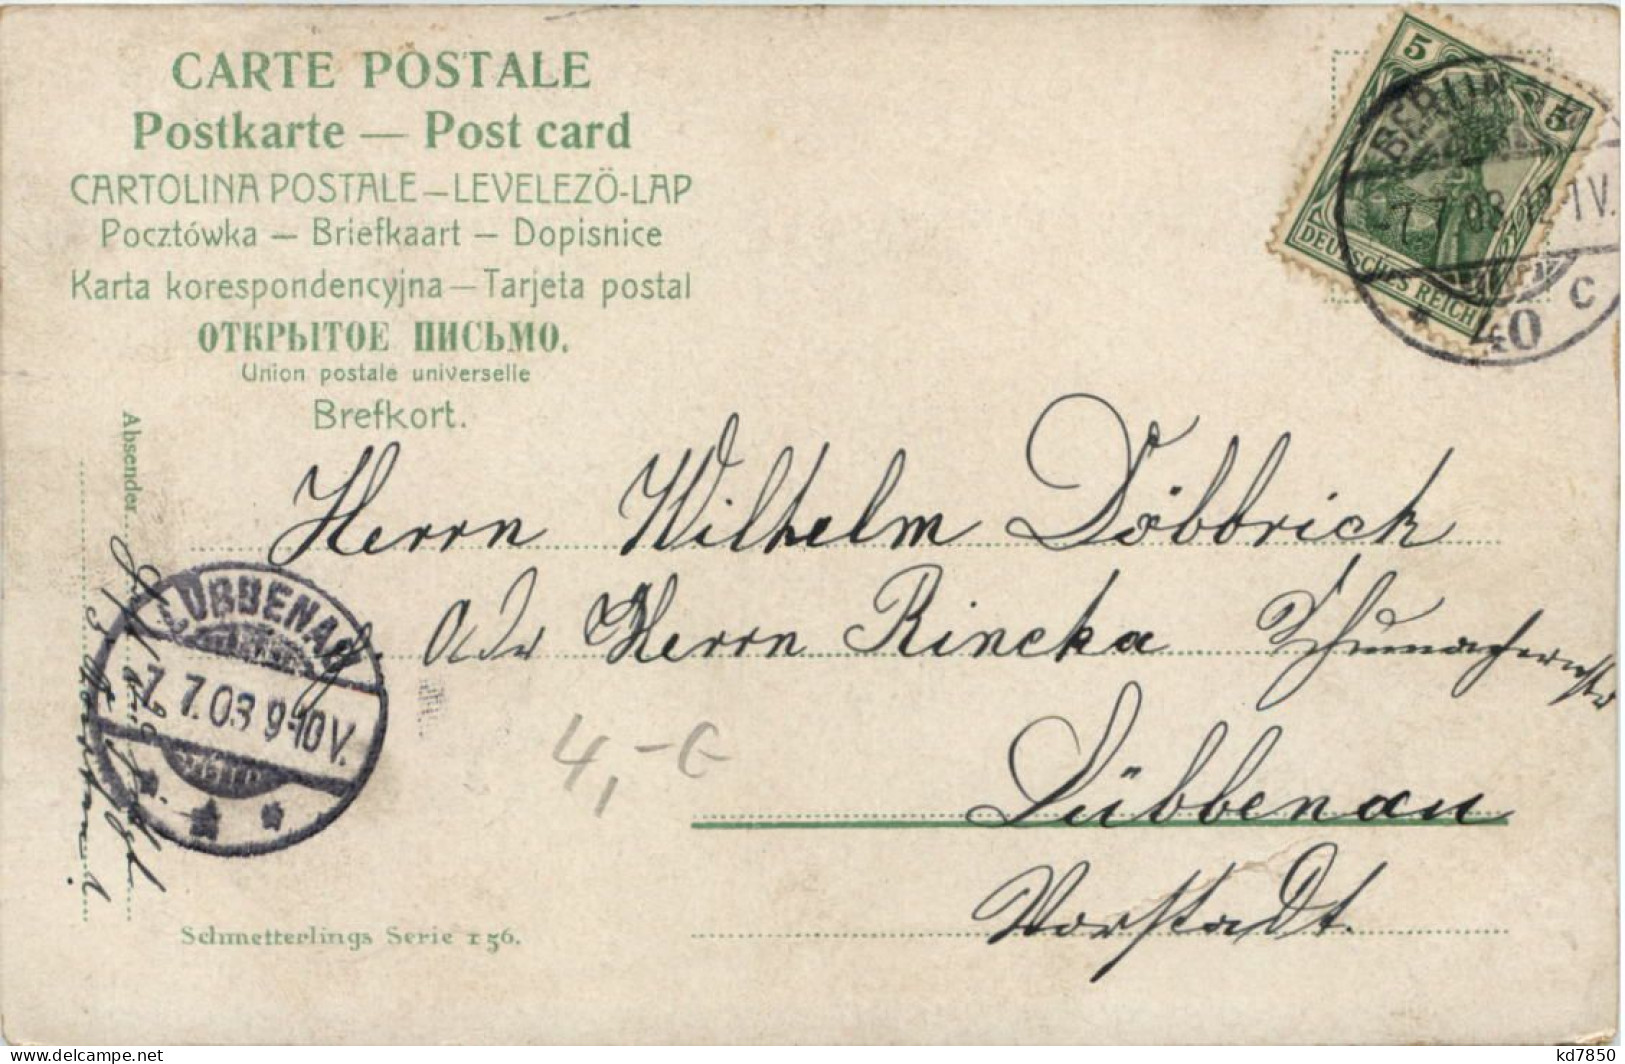 CARTE POSTALE
Postkarte — Post card
CARTOLINA POSTALE – LEVELEZÖ-LAP
Pocztówka — Briefkaart — Dopisnice
Karta korespondencyjna — Tarjeta postal
ОТКРЫТОЕ ПИСЬМО.
Union postale universelle
Brefkort.
5 5
DEUTSCHES REICH
BERLIN
7.7.08.12-1V.
* 40 c
Absender
Herrn Wilhelm Döbbrick
oder Herrn Rincka
Lübbenau
Vorstadt.
LÜBBENAU
7.7.08 9-10V.
4,- €
Schmetterlings Serie 156.
kd7850